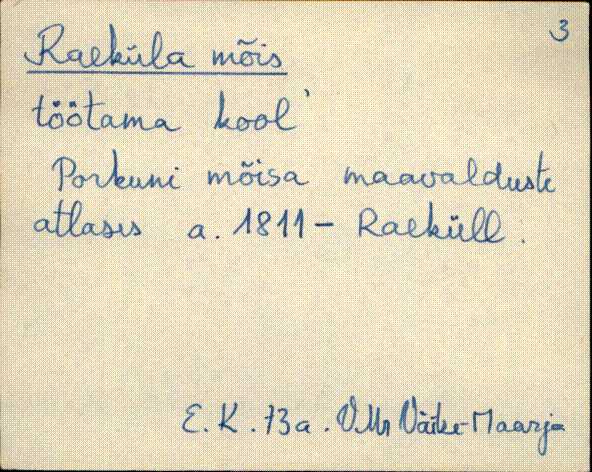 3
Raeküla mõis
töötama kool'
Porkuni mõisa maavalduste
atlases a. 1811 - Raeküll.
E. K. 73a. V.Mr Väike-Maarja